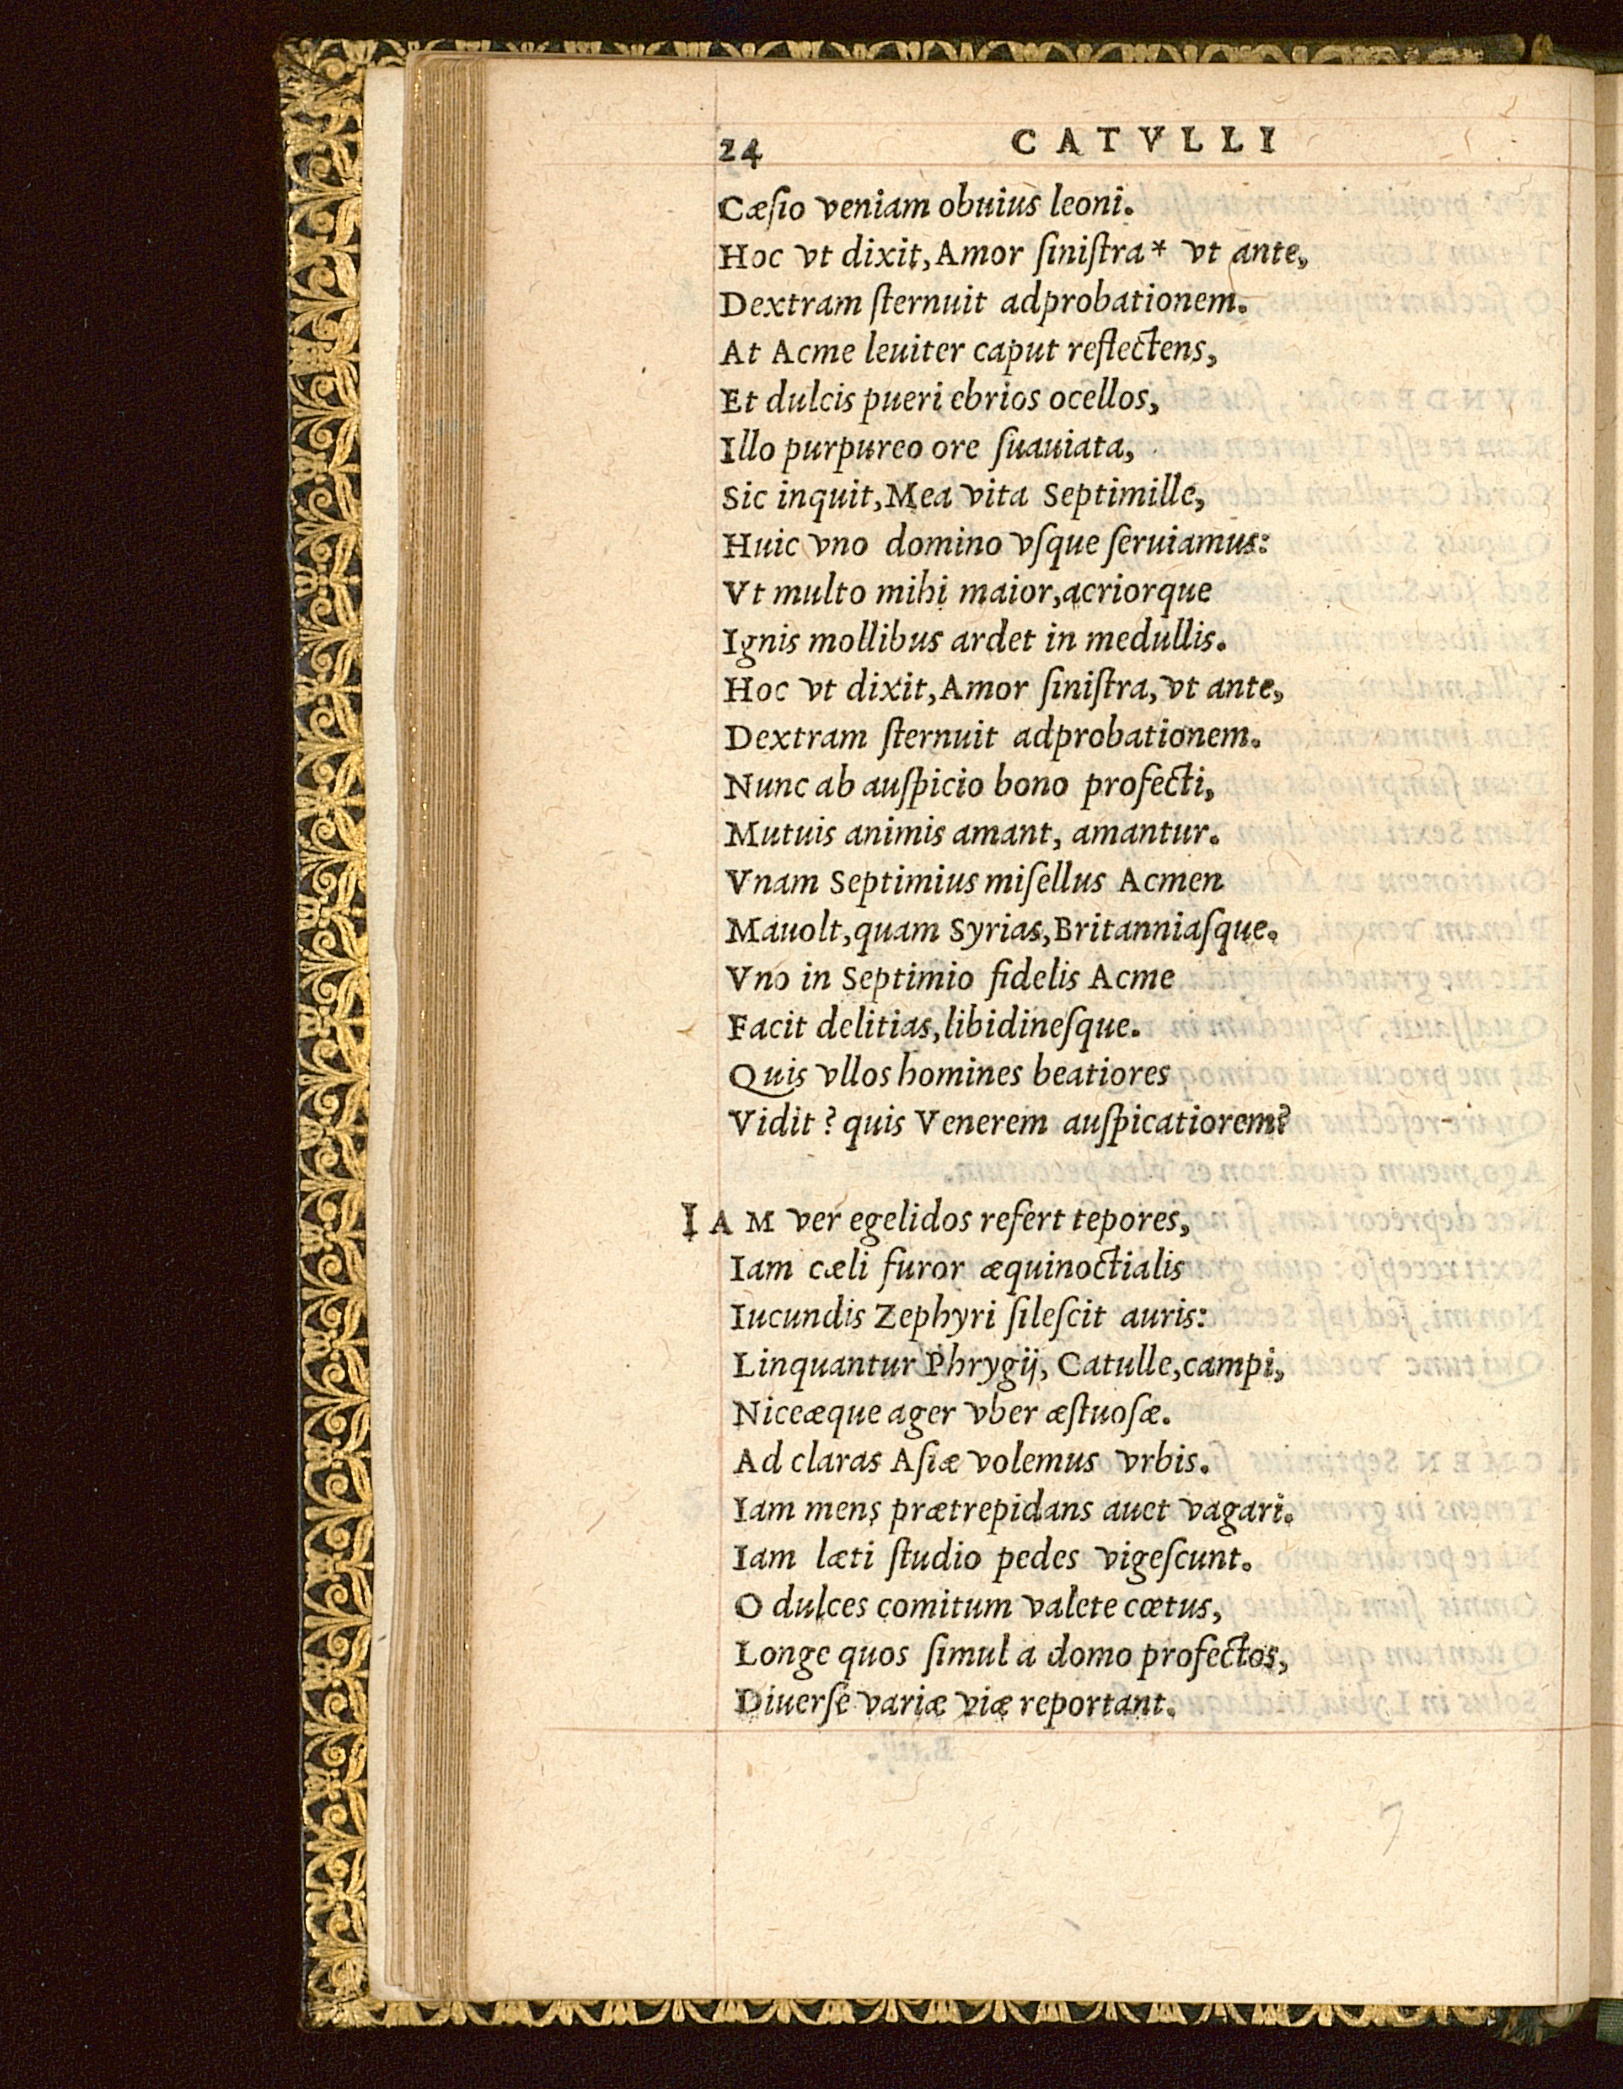 24 CATVLLI
Cæſio veniam obuius leoni.
Hoc vt dixit, Amor ſiniſtra* vt ante,
Dextram ſternuit adprobationem.
At Acme leuiter caput reflectens,
Et dulcis pueri ebrios ocellos,
Illo purpureo ore ſuauiata,
Sic inquit, Mea vita Septimille,
Huic vno domino vſque ſeruiamus:
Vt multo mihi maior, acriorque
Ignis mollibus ardet in medullis.
Hoc vt dixit, Amor ſiniſtra, vt ante,
Dextram ſternuit adprobationem.
Nunc ab auſpicio bono profecti,
Mutuis animis amant, amantur.
Vnam Septimius miſellus Acmen
Mauolt, quam Syrias, Britanniaſque.
Vno in Septimio fidelis Acme
Facit delitias, libidineſque.
Quis vllos homines beatiores
Vidit? quis Venerem auſpicatiorem?
IAM ver egelidos refert tepores,
Iam cæli furor æquinoctialis
Iucundis Zephyri ſileſcit auris:
Linquantur Phrygij, Catulle, campi,
Niceæque ager vber æſtuoſæ.
Ad claras Aſiæ volemus vrbis.
Iam mens prætrepidans auet vagari.
Iam læti ſtudio pedes vigeſcunt.
O dulces comitum valete cœtus,
Longe quos ſimul a domo profectos,
Diuerſe variæ viæ reportant.